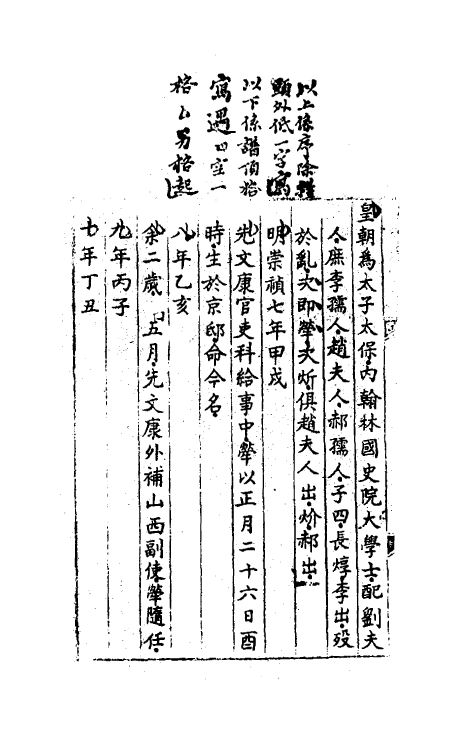 以上係序除擡
頭外低一字寫
以下係譜頂格
寫遇曰空一
格厶另格起
皇朝爲太子太保内翰林國史院大學士配劉夫
人庶李孺人趙夫人郝孺人子四長焞李出歿
於亂次即犖次炘俱趙夫人出炌郝出
明崇禎七年甲戌
先文康官吏科給事中犖以正月二十六日酉
時生於京邸命今名
八年乙亥
余二歲五月先文康外補山西副使犖隨任
九年丙子
十年丁丑